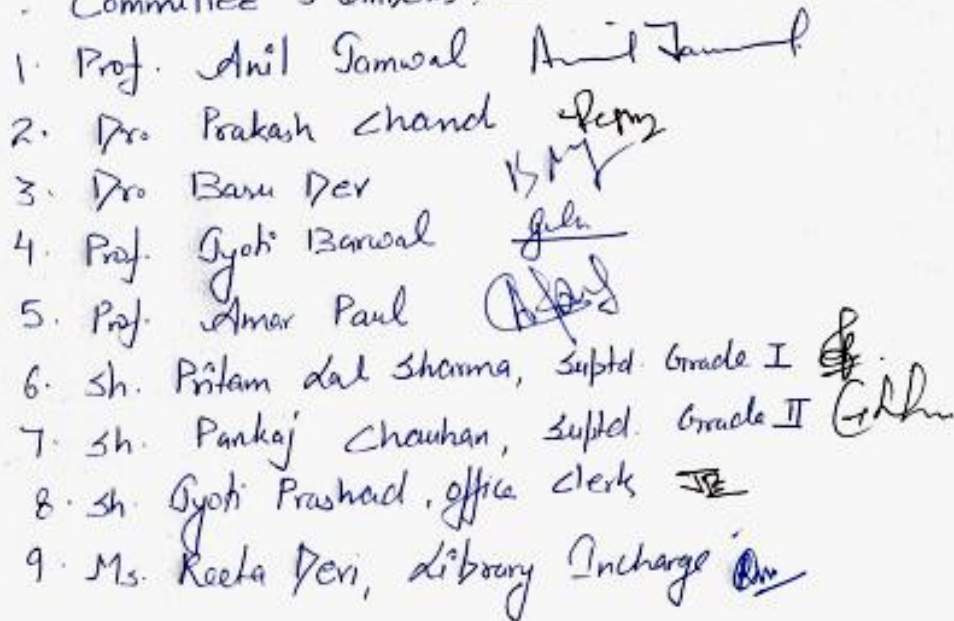 Committee Members
1. Prof. Anil Jamwal
2. Dr. Prakash Chand
3. Dr. Basu Dev
4. Prof. Jyoti Barwal
5. Prof. Amar Paul
6. Sh. Pritam Lal Sharma, Suptd. Grade I
7. Sh. Pankaj Chauhan, Suptd. Grade II
8. Sh. Jyoti Prashad, office clerk
9. Ms. Reeta Devi, Library Incharge